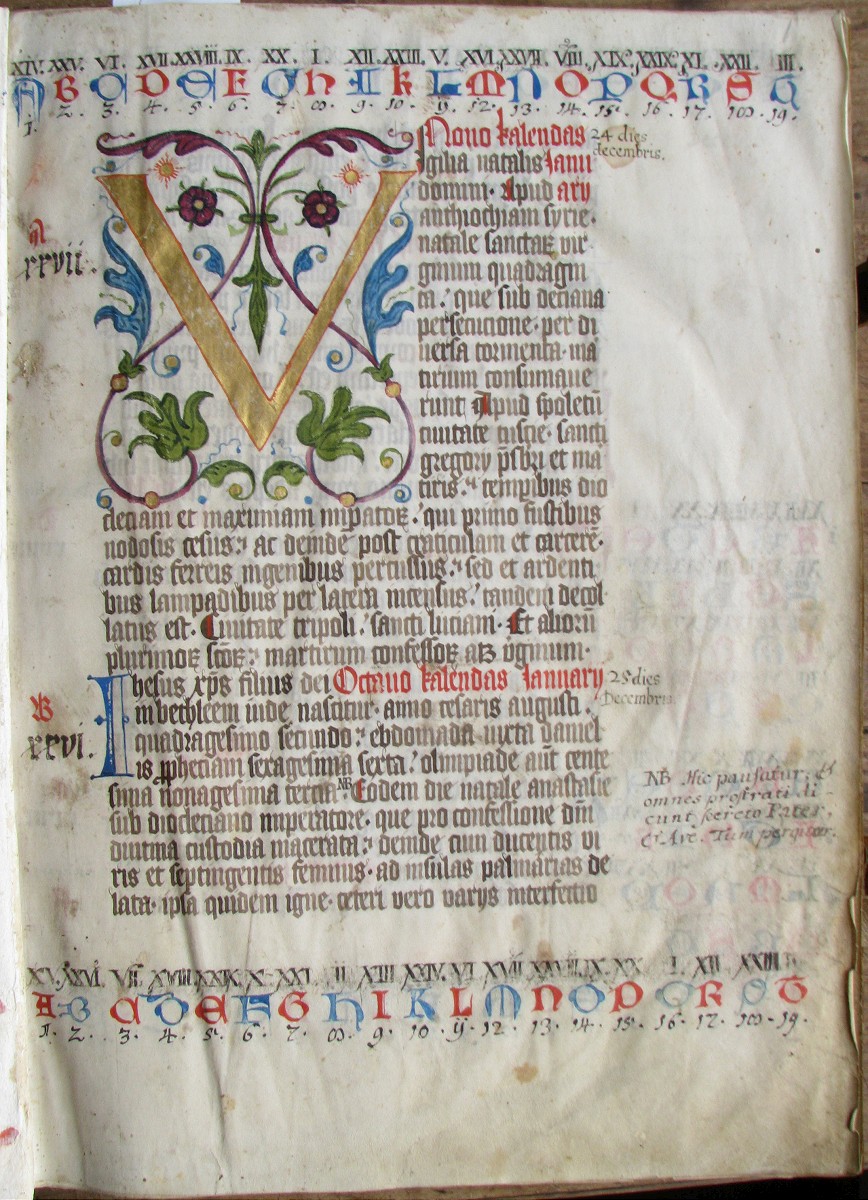 XIV. XXV. VI. XVII. XXVIII. IX. XX. I. XII. XXIII. V. XVI. XXVII. VIII. XIX. XXIX. XI. XXII. III.
A B C D E F G H I K L M N O P Q R S T
1. 2. 3. 4. 5. 6. 7. 8. 9. 10. 11. 12. 13. 14. 15. 16. 17. 18. 19.
Nono kalendas
24 dies
decembris.
Vigilia natalis Ianu
domini. Apud ary
anthiochiam syrie.
natale sanctaꝝ vir
ginum quadragin
ta. que sub deciana
persecucione. per di
uersa tormenta. ma
tirium consumaue
runt. Apud spoletū
ciuitate tuscie. sancti
gregorii p̄sbri et ma
tiris. temporibus dio
A
xxvii.
cleciani et maximiani imp̄atoꝝ. qui primo fustibus
nodosis cesus. ac deinde post craticulam et carcerē.
cardis ferreis in genibus percussus. sed et ardenti
bus lampadibus per latera incensus. tandem decol
latus est. Ciuitate tripoli. sancti luciani. Et alioꝝ
plurimoꝝ sctōꝝ. martirum confessoꝝ atꝫ v̄ginum.
Ihesus xp̄s filius dei Octauo kalendas Ianuarii
25 dies
Decembris.
B
xxvi.
in bethleem iude nascitur. anno cesaris augusti.
quadragesimo secundo. ebdomada iuxta daniel
is ꝓpheciam sexagesima sexta. olimpiade aūt cente
sima nonagesima tercia. NB Eodem die natale anastasie
NB Hic pausatur, et
omnes prostrati di-
cunt secreto Pater,
et Ave. Tum pergitur.
sub diocleciano imperatore. que pro confessione dn̄i
diutina custodia macerata. deinde cum ducentis vi
ris et septingentis feminis. ad insulas palmarias de
lata. ipsa quidem igne. ceteri vero variis interfectio
XV. XXVI. VII. XVIII. XXIX. X. XXI. II. XIII. XXIV. VI. XVII. XXVIII. IX. XX. I. XII. XXIII.
A B C D E F G H I K L M N O P Q R S T
1. 2. 3. 4. 5. 6. 7. 8. 9. 10. 11. 12. 13. 14. 15. 16. 17. 18. 19.